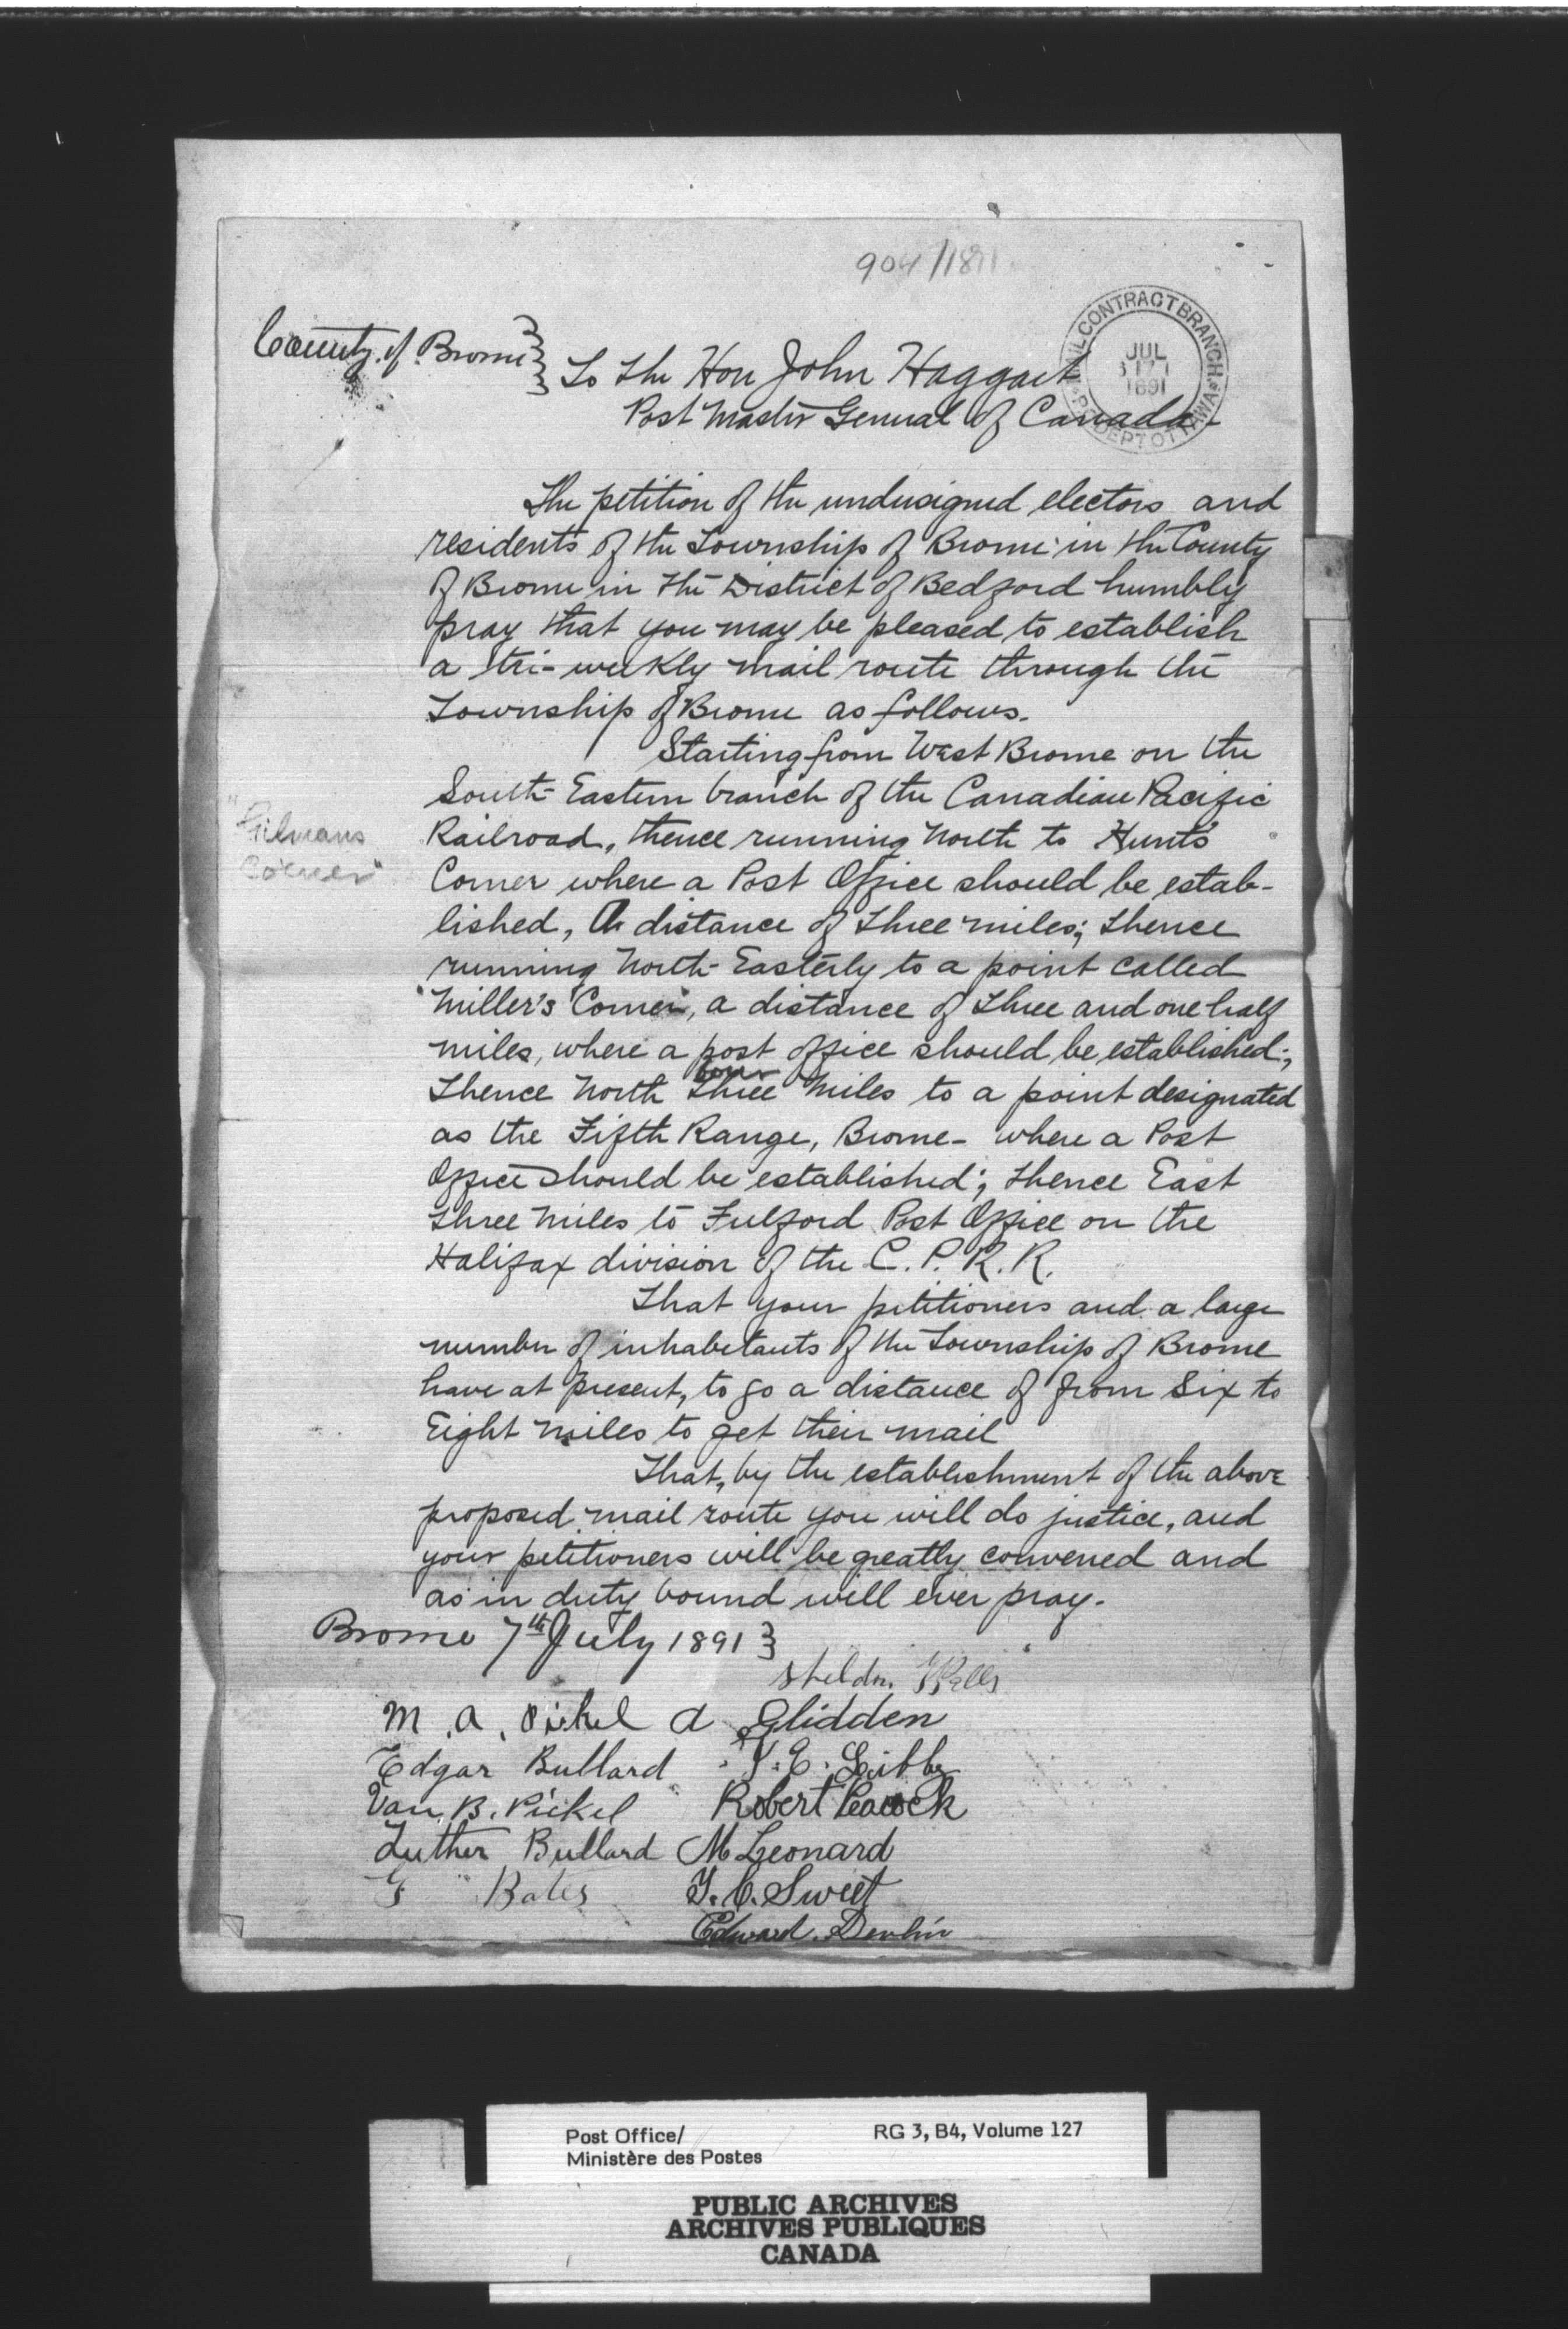 904/1891
County of Brome
MAIL CONTRACT BRANCH
JUL
17
1891
DEPT OTTAWA
To the Hon John Haggart
Post Master General of Canada
The petition of the undersigned electors and
residents of the Township of Brome in the County
of Brome in the District of Bedford humbly
pray that you may be pleased to establish
a tri-weekly mail route through the
Township of Brome as follows.
Starting from West Brome on the
South-Eastern branch of the Canadian Pacific
Railroad, thence running North to Hunt's
Corner where a Post Office should be estab-
lished, A distance of three miles; thence
running North-Easterly to a point called
"Miller's Corner", a distance of three and one half
miles, where a post office should be established;
four
thence North three miles to a point designated
as the Fifth Range, Brome - where a Post
Office should be established; thence East
three miles to Fulford Post Office on the
Halifax division of the C. P. R. R.
"Gilmans
Corner"
That your petitioners and a large
number of inhabitants of the Township of Brome
have at present, to go a distance of from Six to
Eight miles to get their mail
That, by the establishment of the above
proposed mail route you will do justice, and
your petitioners will be greatly convened and
as in duty bound will ever pray.
Brome 7th July 1891
Sheldon Wells
M. A. Pickel
A Glidden
Edgar Bullard
Libby
Van B. Pickel
Robert Peacock
Luther Bullard
M Leonard
G Bates
T. C. Sweet
Edward Devlin
Post Office/
Ministère des Postes
RG 3, B4, Volume 127
PUBLIC ARCHIVES
ARCHIVES PUBLIQUES
CANADA